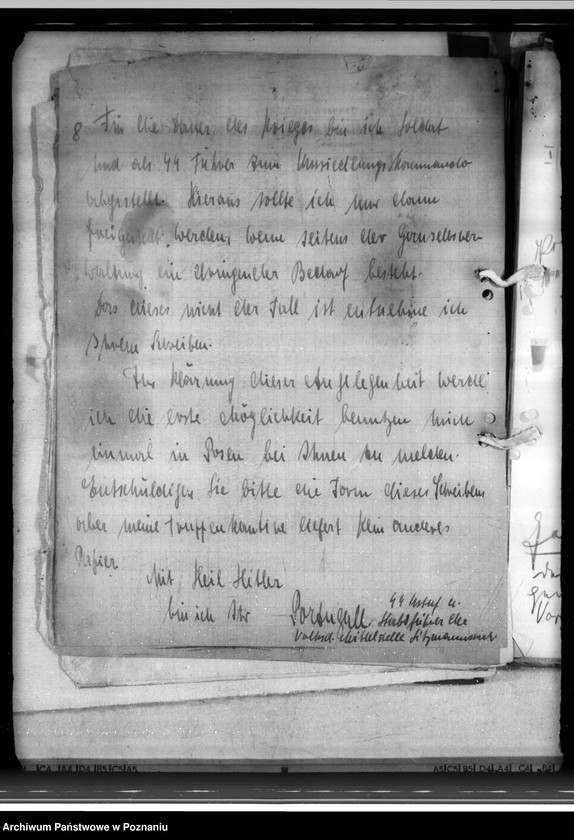 8 Für die Dauer des Krieges bin ich Soldat
und als SS Führer zum Umsiedlungskommando
abgestellt. Hieraus sollte ich nur dann
freigestellt werden, wenn seitens der
waltung ein dringender Bedarf besteht.
Dass dieses nicht der Fall ist entnehme ich
Ihrem Schreiben.
Zur Klärung dieser Angelegenheit werde
ich die erste Möglichkeit benutzen mich
einmal in Posen bei Ihnen zu melden.
Entschuldigen Sie bitte die Form dieses Schreibens
aber meine Truppenkantine liefert kein anderes
Papier
Mit Heil Hitler
bin ich Ihr Portugall. SS Ustuf u.
Stabsführer der
Volksd. Mittelstelle Litzmannstadt
A5 C5 B5 D4 A4 C4
Archiwum Państwowe w Poznaniu